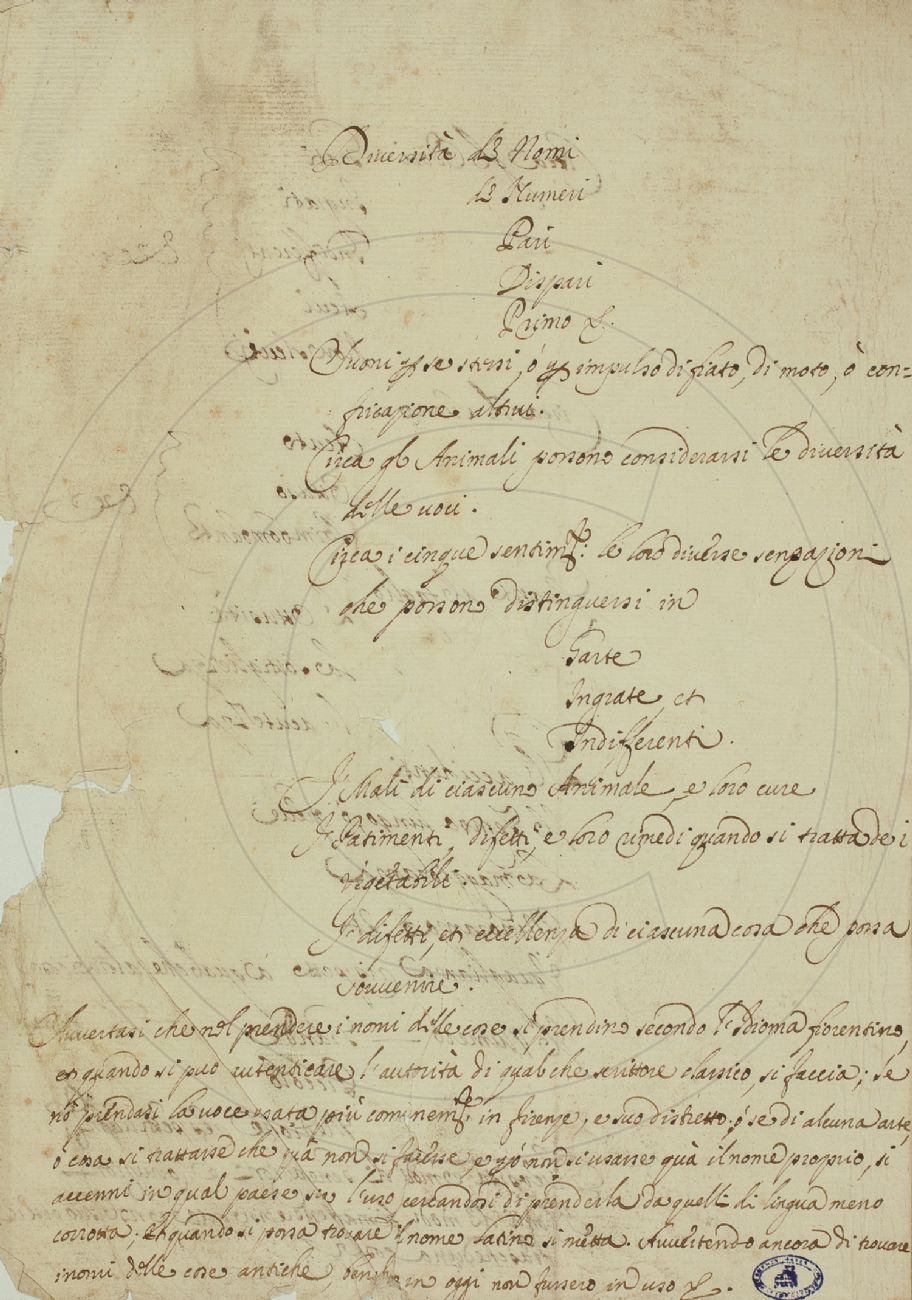 Diversità di Nomi
di Numeri
Pari
Dispari
Primo &.
Suoni p se stessi, ò p impulso di fiato, di moto, ò con=
fricazione altrui.
Circa gl Animali possono considerarsi le diversità
delle voci.
Circa i cinque sentim.ti: le loro diverse senzazioni
che posson distinguersi in
Grate
Ingrate, et
Indifferenti.
I Mali di ciascuno Animale, e loro cure
I Patimenti, difetti, e loro rimedi quando si tratta de i
vigetabili
I difetti, et eccellenza di ciascuna cosa che possa
souvenire.
Avvertasi che nel prendere i nomi delle cose si prendino secondo l'Idioma fiorentino,
et quando si può autenticare l'autorità di qualche scrittore classico, si faccia; se
nò prendasi la voce usata più comunem.te in firenze, e suo distretto; ò se di alcuna arte,
ò cosa si trattasse che quà non si facesse, e però non si usasse quà il nome proprio, si
accenni in qual paese sia l'uso cercandosi di prenderla da quelli di lingua meno
corrotta. Et quando si possa trovare il nome latino si metta. Avvertendo ancora di trovare
i nomi delle cose antiche benche in oggi non fussero in uso &.